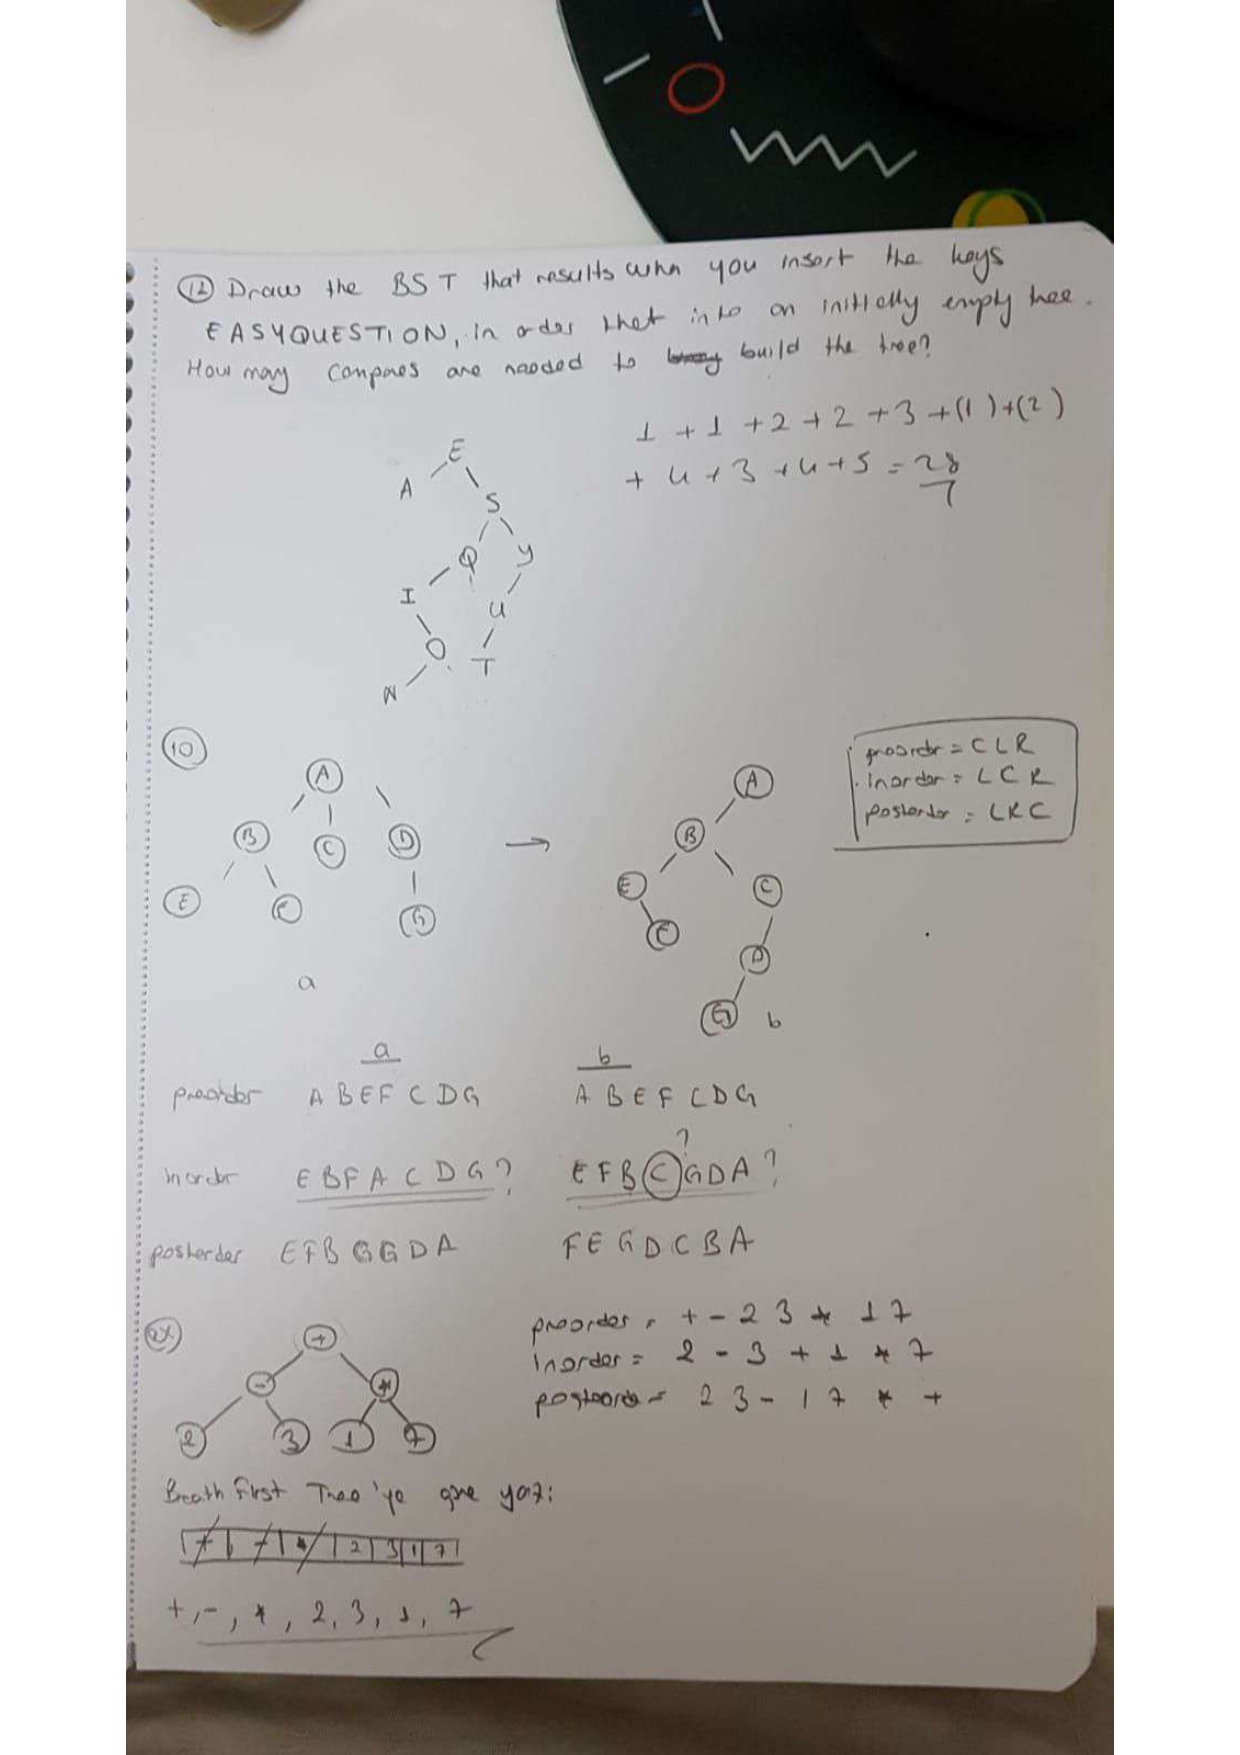 12 Draw the BST that results whn you insert the keys
EASYQUESTION, in order that into an initially empty tree.
How may compares are needed to build the tree?
1 + 1 + 2 + 2 + 3 + (1) + (2)
+ 4 + 3 + 4 + 5 = 28
E
A
S
Q Y
I U
O T
N
10
A
B C D
E F G
a
→
A
B
E C
F D
G b
preorder = CLR
inorder = LCR
postorder = LRC
a b
preorder A B E F C D G A B E F C D G
?
inordr E B F A C D G ? E F B C G D A ?
postorder E F B G G D A F E G D C B A
ex
+
- *
2 3 1 7
preorder = + - 2 3 * 1 7
inorder = 2 - 3 + 1 * 7
postoord = 2 3 - 1 7 * +
Breath First Tree 'ye göre yaz:
+ - * 2 3 1 7
+, -, *, 2, 3, 1, 7